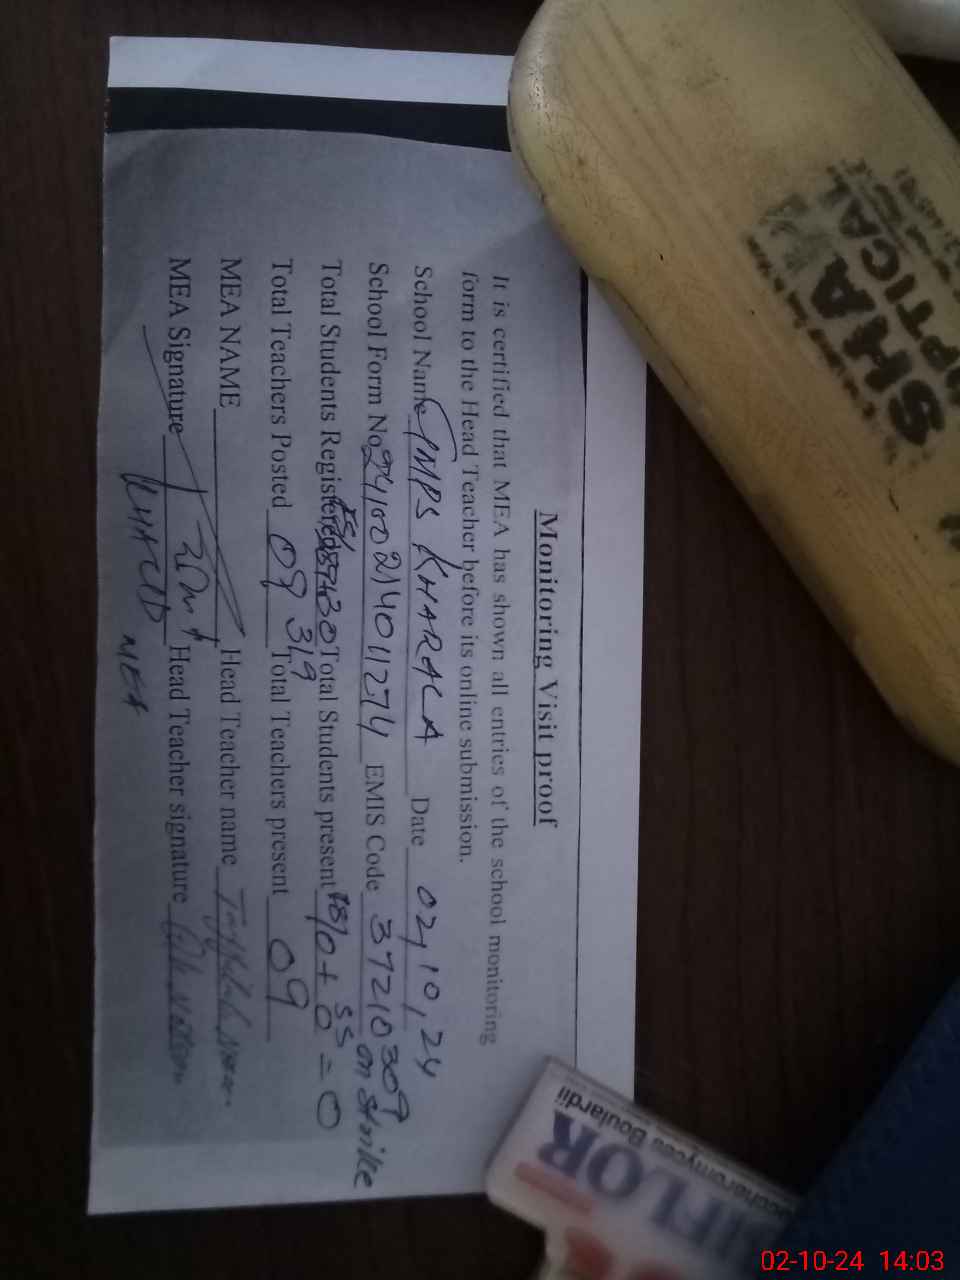 Monitoring Visit proof
It is certified that MEA has shown all entries of the school monitoring
form to the Head Teacher before its online submission.
School Name GMPS KHARACA Date 02,10,24
School Form No 24100214011274 EMIS Code 37210309
on strike
Total Students Registered Total Students present + 0 = 0
319
Total Teachers Posted 09 Total Teachers present 09
MEA NAME Head Teacher name
MEA Signature Head Teacher signature
MEA
SHAL
OPTICAL
FLOR
Boulardii
02-10-24 14:03